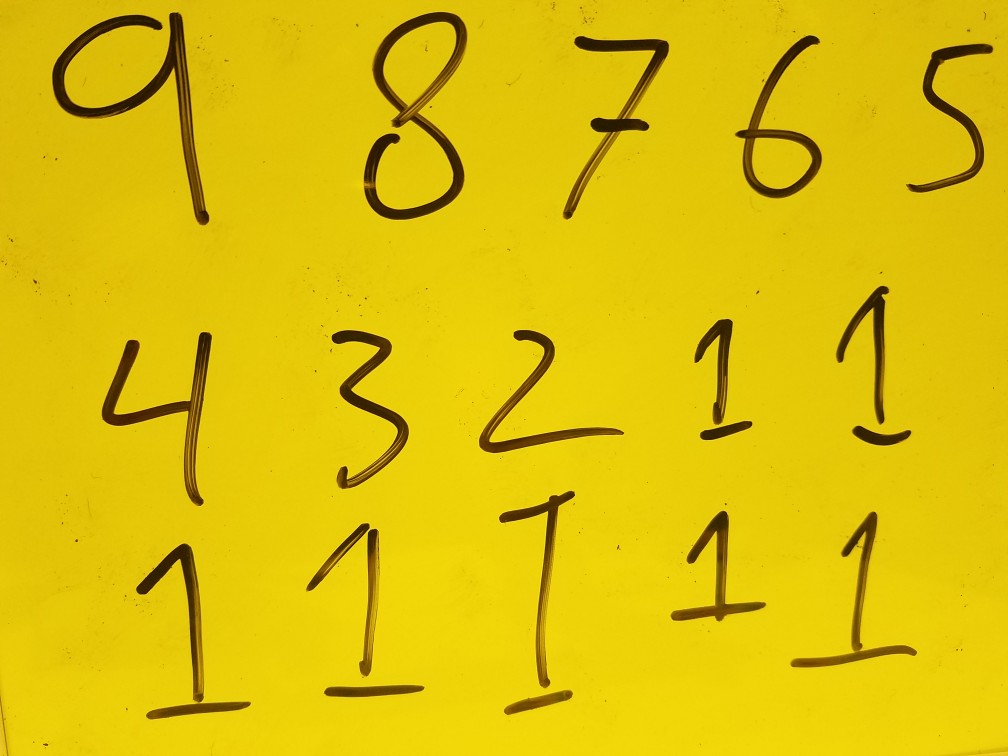 9 8 7 6 5
4 3 2 1 1
1 1 I 1 1